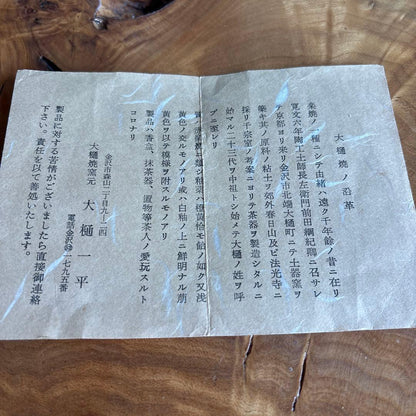 大樋焼ノ沿革
楽焼ノ一種ニシテ由緒ハ遠ク千年餘ノ昔ニ在リ
寛文六年陶工土師長左衛門前田綱紀卿ニ召サレ
テ京都ヨリ来リ金沢市北端大樋町ニテ土器窯ヲ
築キ其ノ原料ノ粘土ヲ郊外春日山及ビ法光寺ニ
採リ千宗室ノ考案ニヨリテ茶器ヲ製造シタルニ
始マル二十三代ヲ中祖トシ始メテ大樋ノ姓ヲ呼
ブニ至レリ
ハ素焼ニシテ釉薬ハ橙黄恰モ飴ノ如ク又浅
黄色ノ交ルモノアリ或ハ白釉ノ上ニ鮮明ナル萠
黄色ヲ以テ模様ヲ附スルモノアリ
製品ハ香盒、抹茶器、置物等茶人ノ愛玩スルト
コロナリ
金沢市森山二丁目九ノ二四
大樋焼窯元 大樋一平
電話金沢 二七九五番
製品に対する苦情がございましたら直接御連絡
下さい。責任を以て善処いたします。